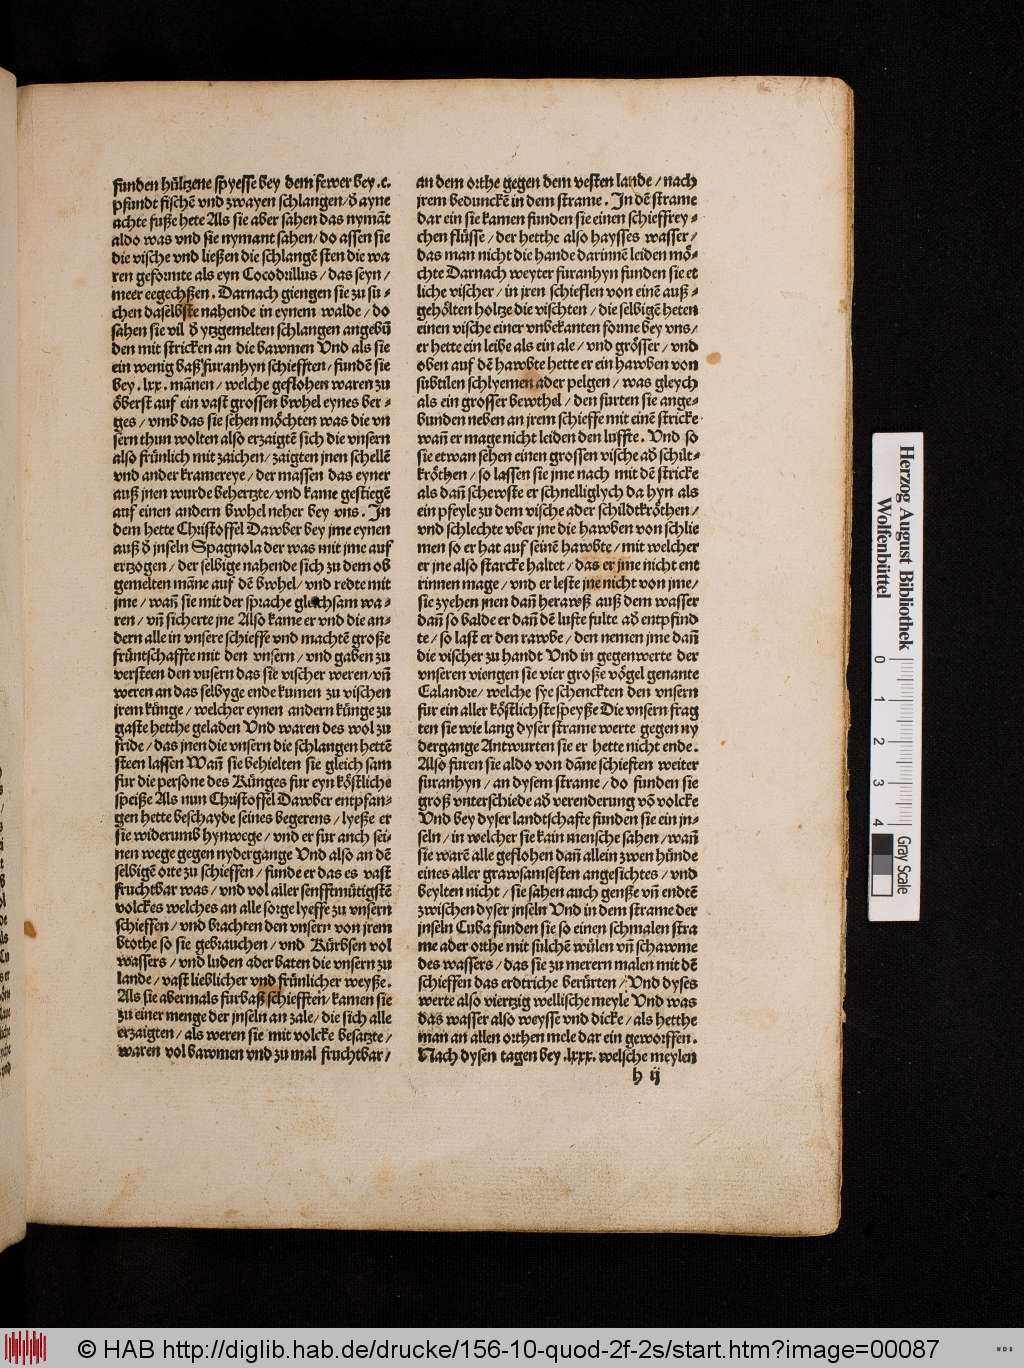 funden hültzene spyesse bey dem fewer bey .c.
pfundt fischē vnd zwayen schlangen / d̄ ayne
achte fuße hete Als sie aber sahen das nymāt
aldo was vnd sie nymant sahen / do assen sie
die vische vnd ließen die schlangē sten die wa
ren geformte als eyn Cocodrillus / das seyn /
meer eegechßen . Darnach giengen sie zu su⸗
chen daselbste nahende in eynem walde / do
sahen sie vil d̄ ytzgemelten schlangen angebū
den mit stricken an die bawmen Vnd als sie
ein wenig baß furanhyn schiefften / fundē sie
bey . lxx . mānen / welche geflohen waren zu
öberst auf ein vast grossen bwhel eynes ber⸗
ges / vmb das sie sehen möchten was die vn
sern thun wolten also erzaigtē sich die vnsern
also frünlich mit zaichen / zaigten jnen schellē
vnd ander kramereye / der massen das eyner
auß jnen wurde behertzte / vnd kame gestiegē
auf einen andern bwhel neher bey vns . In
dem hette Christoffel Dawber bey jme eynen
auß d̄ jnseln Spagnola der was mit jme auf
ertzogen / der selbige nahende sich zu dem ob
gemelten māne auf dē bwhel / vnd redte mit
jme / wan̄ sie mit der sprache gleichsam wa⸗
ren / vn̄ sicherte jne Also kame er vnd die an⸗
dern alle in vnsere schieffe vnd machtē große
früntschaffte mit den vnsern / vnd gaben zu
versteen den vusern das sie vischer weren / vn̄
weren an das selbyge ende kumen zu vischen
jrem künge / welcher eynen andern künge zu
gaste hetthe geladen Vnd waren des wol zu
fride / das jnen die vnsern die schlangen hettē
steen lassen Wan̄ sie behielten sie gleich sam
fur die persone des Künges fur eyn köstliche
speiße Als nun Christoffel Dawber entpfan⸗
gen hette beschayde seines begerens / lyeße er
sie widerumb hynwege / vnd er fur anch sei⸗
nen wege gegen nydergange Vnd also an dē
selbigē orte zu schieffen / funde er das es vast
fruchtbar was / vnd vol aller senfftmütigstē
volckes welches an alle sorge lyeffe zu vnsern
schieffen / vnd brachten den vnsern von jrem
btothe so sie gebrauchen / vnd Kürbsen vol
wassers / vnd luden ader baten die vnsern zu
lande / vast lieblicher vnd frünlicher weyße .
Als sie abermals furbaß schiefften / kamen sie
zu einer menge der jnseln an zale / die sich alle
erzaigten / als weren sie mit volcke besatzte /
waren vol bawmen vnd zu mal fruchtbar /
an dem orthe gegen dem vesten lande / nach
jrem bedunckē in dem strame . In dē strame
dar ein sie kamen funden sie einen schieffrey⸗
chen flüsse / der hetthe also haysses wasser /
das man nicht die hande darinnē leiden mö⸗
chte Darnach weyter furanhyn funden sie et
liche vischer / in jren schieflen von einē auß⸗
gehölten holtze die vischten / die selbigē heten
einen vische einer vnbekanten forme bey vns /
er hette ein leibe als ein ale / vnd grösser / vnd
oben auf dē hawbte hette er ein hawben von
subtilen schlyemen ader pelgen / was gleych
als ein grosser bewthel / den furten sie ange⸗
bunden neben an jrem schieffe mit einē stricke
wan̄ er mage nicht leiden den luffte . Vnd so
sie etwan sehen einen grossen vische ad̄ schilt⸗
kröthen / so lassen sie jme nach mit dē stricke
als dan̄ schewste er schnelliglych da hyn als
ein pfeyle zu dem vische ader schildtkröthen /
vnd schlechte vber jne die hawben von schlie
men so er hat auf seinē hawbte / mit welcher
er jne also starcke haltet / das er jme nicht ent
rinnen mage / vnd er leste jne nicht von jme /
sie zyehen jnen dan̄ herawß auß dem wasser
dan̄ so balde er dan̄ dē lufte fulte ad̄ entpfind
te / so last er den rawbe / den nemen jme dan̄
die vischer zu handt Vnd in gegenwerte der
vnseren viengen sie vier große vögel genante
Calandre / welche sye schenckten den vnsern
fur ein aller köstlichste speyße Die vnsern frag
ten sie wie lang dyser strame werte gegen ny
dergange Antwurten sie er hette nicht ende .
Also furen sie aldo von dāne schieften weiter
furanhyn / an dysem strame / do funden sie
groß vnterschiede ad̄ verenderung vō volcke
Vnd bey dyser landtschafte funden sie ein jn⸗
seln / in welcher sie kain mensche sahen / wan̄
sie warē alle geflohen dan̄ allein zwen hünde
eines aller grawsamsesten angesichtes / vnd
beylten nicht / sie sahen auch genße vn̄ endtē
zwischen dyser jnseln Vnd in dem strame der
jnseln Cuba funden sie so einen schmalen stra
me ader orthe mit sülchē wülen vn̄ schawme
des wassers / das sie zu merern malen mit dē
schieffen das erdtriche berürten / Vnd dyses
werte also viertzig wellische meyle Vnd was
das wasser also weysse vnd dicke / als hetthe
man an allen orthen mele dar ein geworffen .
Nach dysen tagen bey .lxxx. welsche meylen
h ij
Herzog August Bibliothek
Wolfenbüttel
0 1 2 3 4
Gray Scale
© HAB http://diglib.hab.de/drucke/156-10-quod-2f-2s/start.htm?image=00087